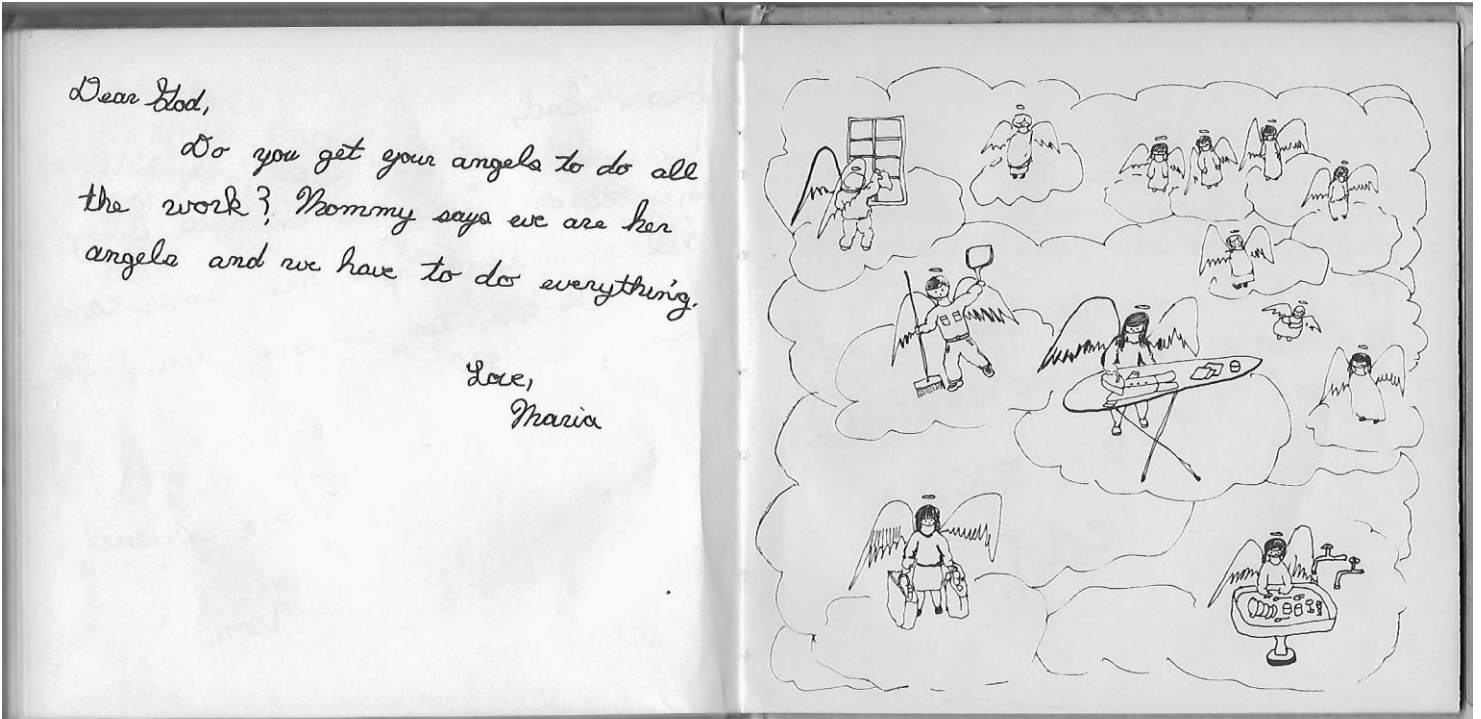 Dear God,
Do you get your angels to do all
the work? Mommy says we are her
angels and we have to do everything.
Love,
Maria